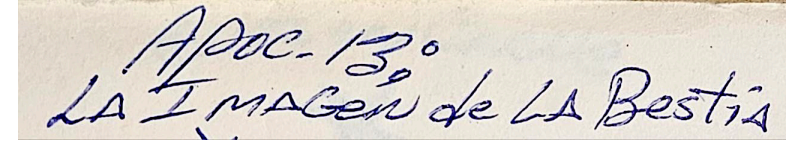 Apoc. 13:
LA IMAGEN de LA Bestia